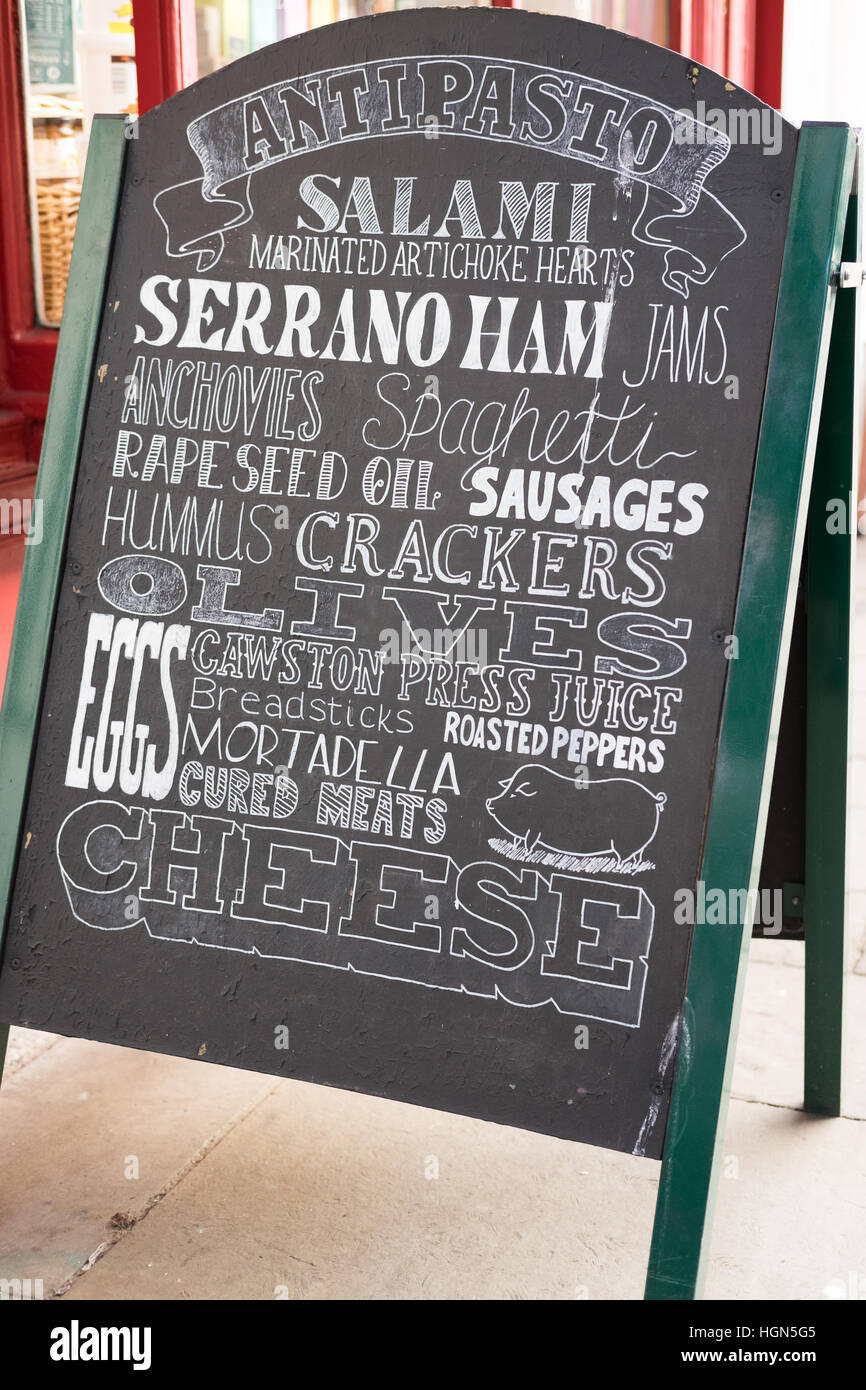 ANTIPASTO
SALAMI
MARINATED ARTICHOKE HEARTS
SERRANO HAM JAMS
ANCHOVIES Spaghetti
RAPE SEED OIL SAUSAGES
HUMMUS CRACKERS
OLIVES
EGGS
CAWSTON PRESS JUICE
Breadsticks ROASTED PEPPERS
MORTADELLA
CURED MEATS
CHEESE
alamy
Image ID: HGN5G5
www.alamy.com